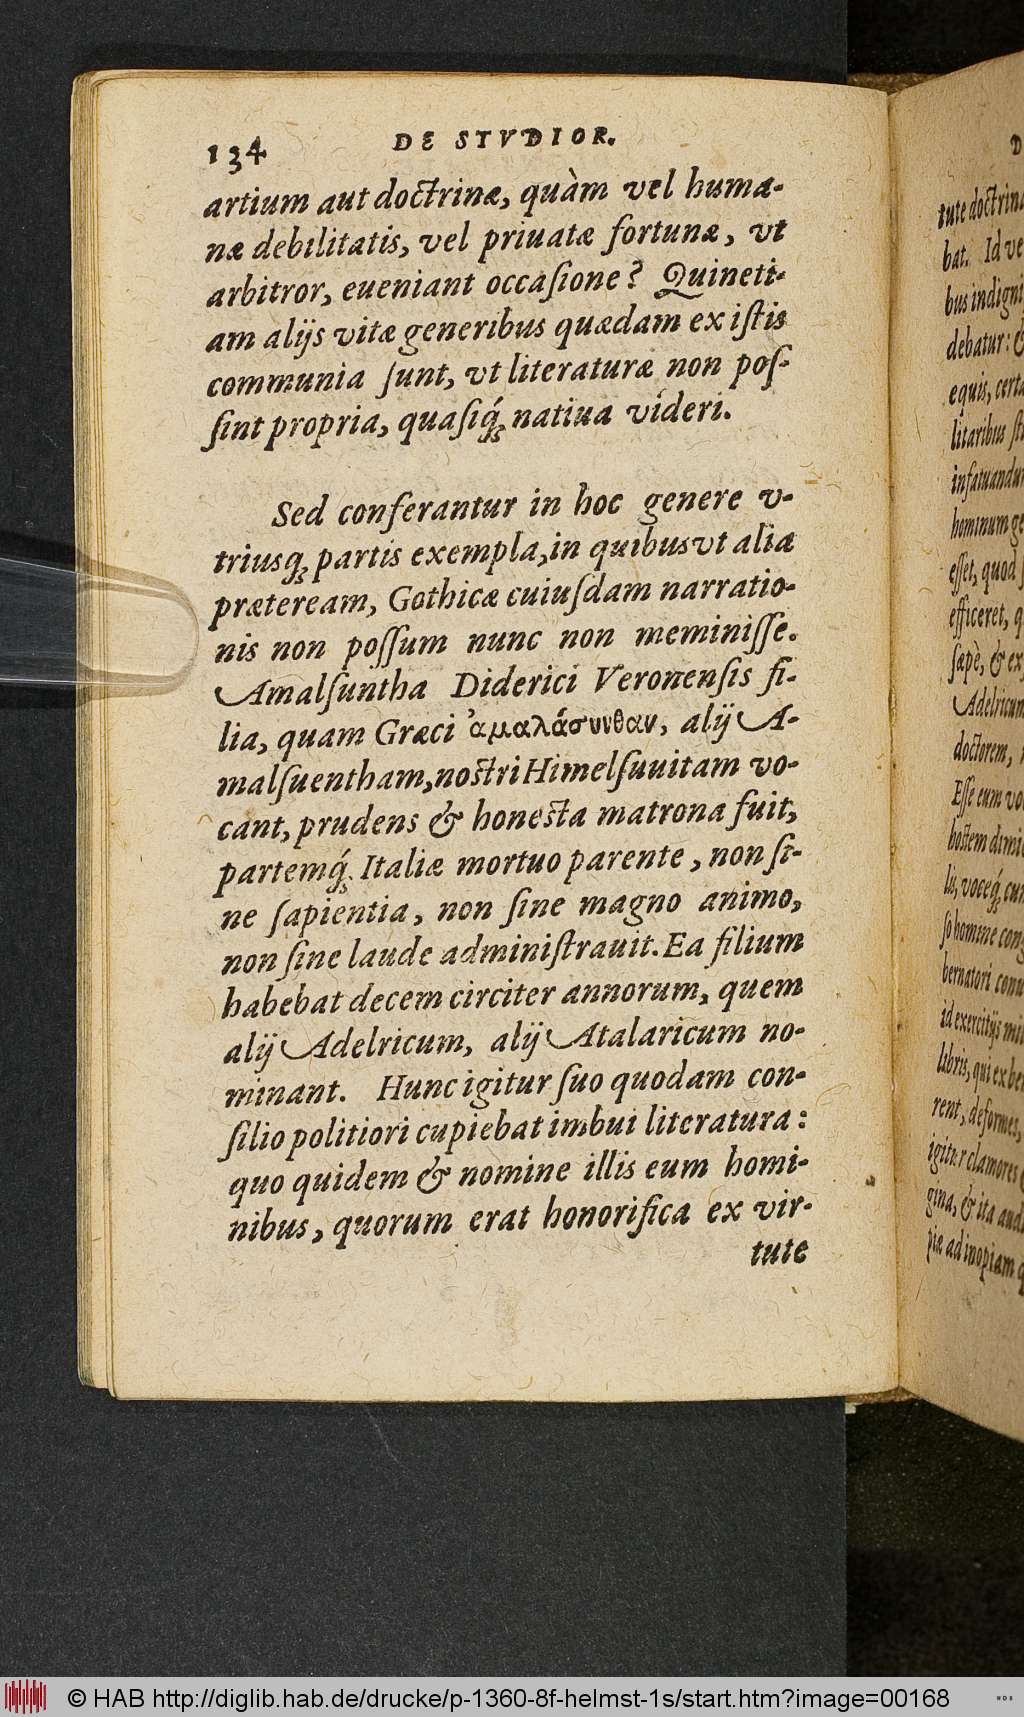 134 DE STVDIOR.
artium aut doctrinæ, quàm vel huma-
næ debilitatis, vel priuatæ fortunæ, vt
arbitror, eueniant occaſione? Quineti-
am alijs vitæ generibus quædam ex iſtis
communia ſunt, vt literaturæ non poſ-
ſint propria, quaſiq́; natiua videri.
Sed conferantur in hoc genere v-
triusq; partis exempla, in quibus vt alia
præteream, Gothicæ cuiuſdam narratio-
nis non poſſum nunc non meminiſſe.
Amalſuntha Diderici Veronenſis fi-
lia, quam Græci ἀμαλάσυνθαν, alij A-
malſuentham, noſtri Himelſuuitam vo-
cant, prudens & honeſta matrona fuit,
partemq́; Italiæ mortuo parente, non ſi-
ne ſapientia, non ſine magno animo,
non ſine laude adminiſtrauit. Ea filium
habebat decem circiter annorum, quem
alij Adelricum, alij Atalaricum no-
minant. Hunc igitur ſuo quodam con-
ſilio politiori cupiebat imbui literatura:
quo quidem & nomine illis eum homi-
nibus, quorum erat honorifica ex vir-
tute
D
tute doctrina
bat. Id ve
bus indigni
debatur: &
equis, certa
litaribus ſt
infatuandu
hominum ge
eſſet, quod
efficeret, q
ſæpè, & ex
Adelricum
doctorem,
Eſſe eum vo
hoſtem dimi
lu, voceq́; cum
ſo homine cong
bernatori conu
id exercitijs mi
libris, qui ex be
rent, deformes,
igitur clamores
gina, & ita aud
piæ ad inopiam q
© HAB http://diglib.hab.de/drucke/p-1360-8f-helmst-1s/start.htm?image=00168